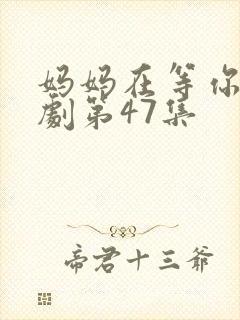 妈妈在等你
劇第47集
帝君十三爺